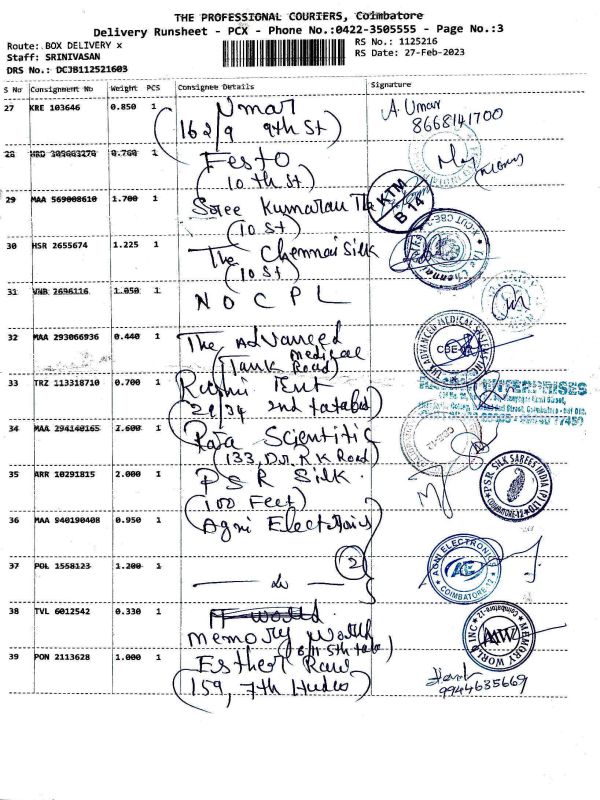 THE PROFESSIONAL COURIERS, Coimbatore
Delivery Runsheet - PCX - Phone No.:0422-3505555 - Page No.:3
Route: BOX DELIVERY x
RS No.: 1125216
Staff: SRINIVASAN
RS Date: 27-Feb-2023
DRS No.: DCJB112521603
S No Consignment No Weight PCS Consignee Details Signature
27 KRE 103646 0.850 1 Umar A. Umar
162/9 9th St 8668141700
28 HRD 305663270 0.760 1 Festo
(10 th St)
29 MAA 569008610 1.700 1 Sree Kumaran The KTM B 14
(10 St)
30 HSR 2655674 1.225 1 The Chennai Silk
(10 St)
31 VNB 2696116 1.050 1 NOCPL
32 MAA 293066936 0.440 1 The Advanced CBE-12
Medical
(Tank Road)
33 TRZ 113318710 0.700 1 Ent ENTERPRISES
34 MAA 294140165 2.600 1 Scientific
(133, Dr. R K Road)
35 ARR 10291815 2.000 1 PSR Silk PSR SILK SAREES INDIA (P) LTD
(100 Feet)
36 MAA 940190408 0.950 1 Agni Electronics
2
37 POL 1558123 1.200 1 AGNI ELECTRONICS AE COIMBATORE 12
38 TVL 6012542 0.330 1
Memory World MEMORY WORLD INC MW Coimbatore-12
39 PON 2113628 1.000 1 Esther Rani
(159, 7th 9944635669